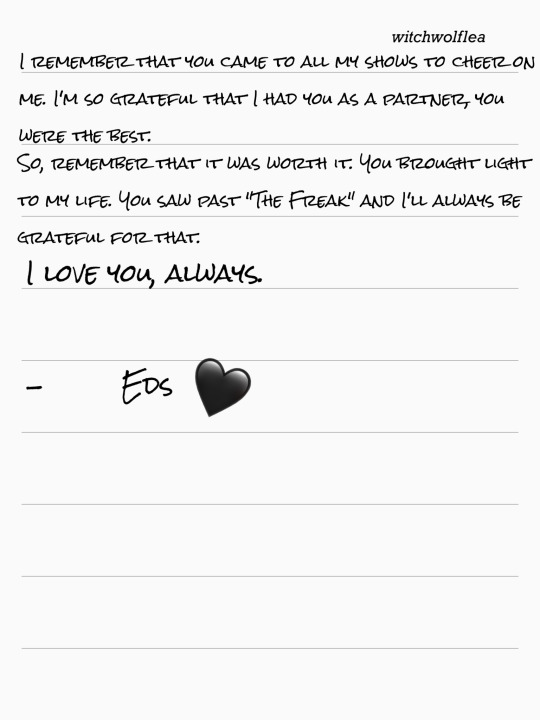 witchwolflea
I remember that you came to all my shows to cheer on
me. I'm so grateful that I had you as a partner, you
were the best.
So, remember that it was worth it. You brought light
to my life. You saw past "The Freak" and I'll always be
grateful for that.
I love you, always.
- Eds 🖤